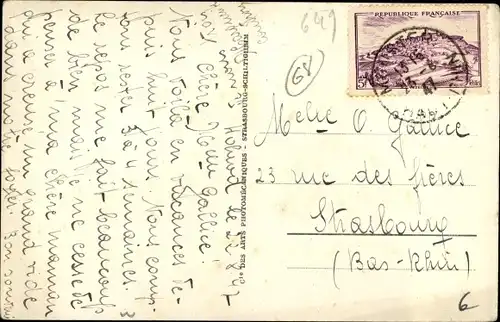 Hohwald le 2.8.47
Chère Mlle Gallice!
Nous voilà en vacances de-
puis huit jours. Nous comp-
tons rester 3 à 4 semaines.
Le repos me fait beaucoup
de bien mais je ne cesse de
penser à ma chère maman
qui a creusé un grand vide
dans notre foyer. Bon
Cie DES ARTS PHOTOMÉCANIQUES - STRASBOURG-SCHILTIGHEIM
649
68
REPUBLIQUE FRANÇAISE
Melle O. Gallice
23 rue des frères
Strasbourg
(Bas-Rhin)
6